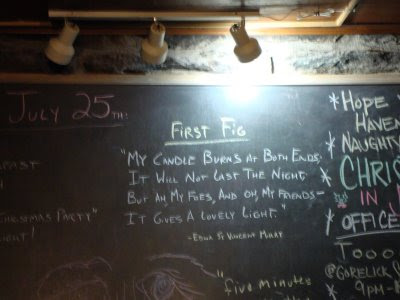 July 25th:
past
Christmas Party"
ight!
First Fig
"My Candle Burns at Both Ends,
It Will Not Last The Night.
But Ah, My Foes, And Oh, My Friends -
It Gives A Lovely Light."
- Edna St Vincent Millay
"five minutes
* Hope
Haven
* Naughty
Chris
in
* Office
Tooo
@Gorelick
9pm -